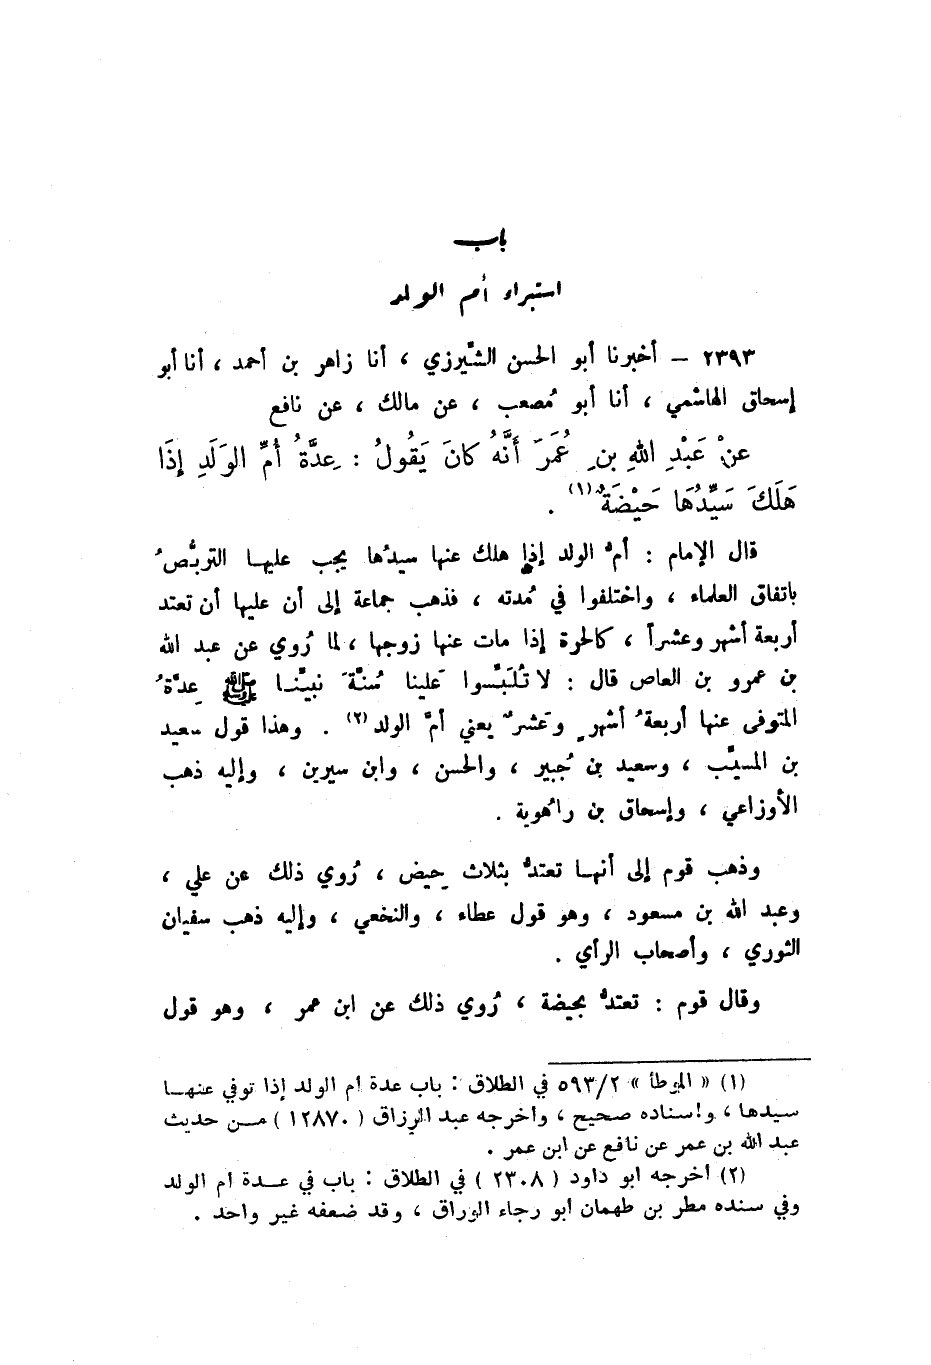 باب
استبراء أم الولد
٢٣٩٣ – أخبرنا أبو الحسن الشِّيرزي ، أنا زاهر بن أحمد ، أنا أبو
إسحاق الهاشمي ، أنا أبو مُصعب ، عن مالك ، عن نافع
عنْ عَبْدِ اللهِ بنِ عُمَرَ أَنَّهُ كانَ يَقُولُ : عِدَّةُ أُمِّ الوَلَدِ إِذَا
هَلَكَ سَيِّدُهَا حَيْضَةٌ (١) .
قال الإمام : أمُّ الولد إذا هلك عنها سيدُها يجب عليها التربُّصُ
باتفاق العلماء ، واختلفوا في مُدته ، فذهب جماعة إلى أن عليها أن تعتد
أربعة أشهر وعشراً ، كالحرة إذا مات عنها زوجها ، لما رُوي عن عبد الله
بن عمرو بن العاص قال : لا تُلَبِّسوا عَلينا سُنَّةَ نبيِّنا ﷺ عِدَّةُ
المتوفى عنها أربعةُ أشهرٍ وعَشرٌ يعني أمَّ الولد (٢) . وهذا قول سعيد
بن المسيَّب ، وسعيد بن جُبير ، والحسن ، وابن سيرين ، وإليه ذهب
الأوزاعي ، وإسحاق بن راهُوية .
وذهب قوم إلى أنها تعتدُّ بثلاث حِيض ، رُوي ذلك عن علي ،
وعبد الله بن مسعود ، وهو قول عطاء ، والنخعي ، وإليه ذهب سفيان
الثوري ، وأصحاب الرأي .
وقال قوم : تعتدُّ بحيضة ، رُوي ذلك عن ابن عمر ، وهو قول
(١) « الموطأ » ٥٩٣/٢ في الطلاق : باب عدة ام الولد إذا توفي عنها
سيدها ، وإسناده صحيح ، وأخرجه عبد الرزاق ( ١٢٨٧٠ ) من حديث
عبد الله بن عمر عن نافع عن ابن عمر .
(٢) أخرجه ابو داود ( ٢٣٠٨ ) في الطلاق : باب في عدة ام الولد
وفي سنده مطر بن طهمان أبو رجاء الوراق ، وقد ضعفه غير واحد .